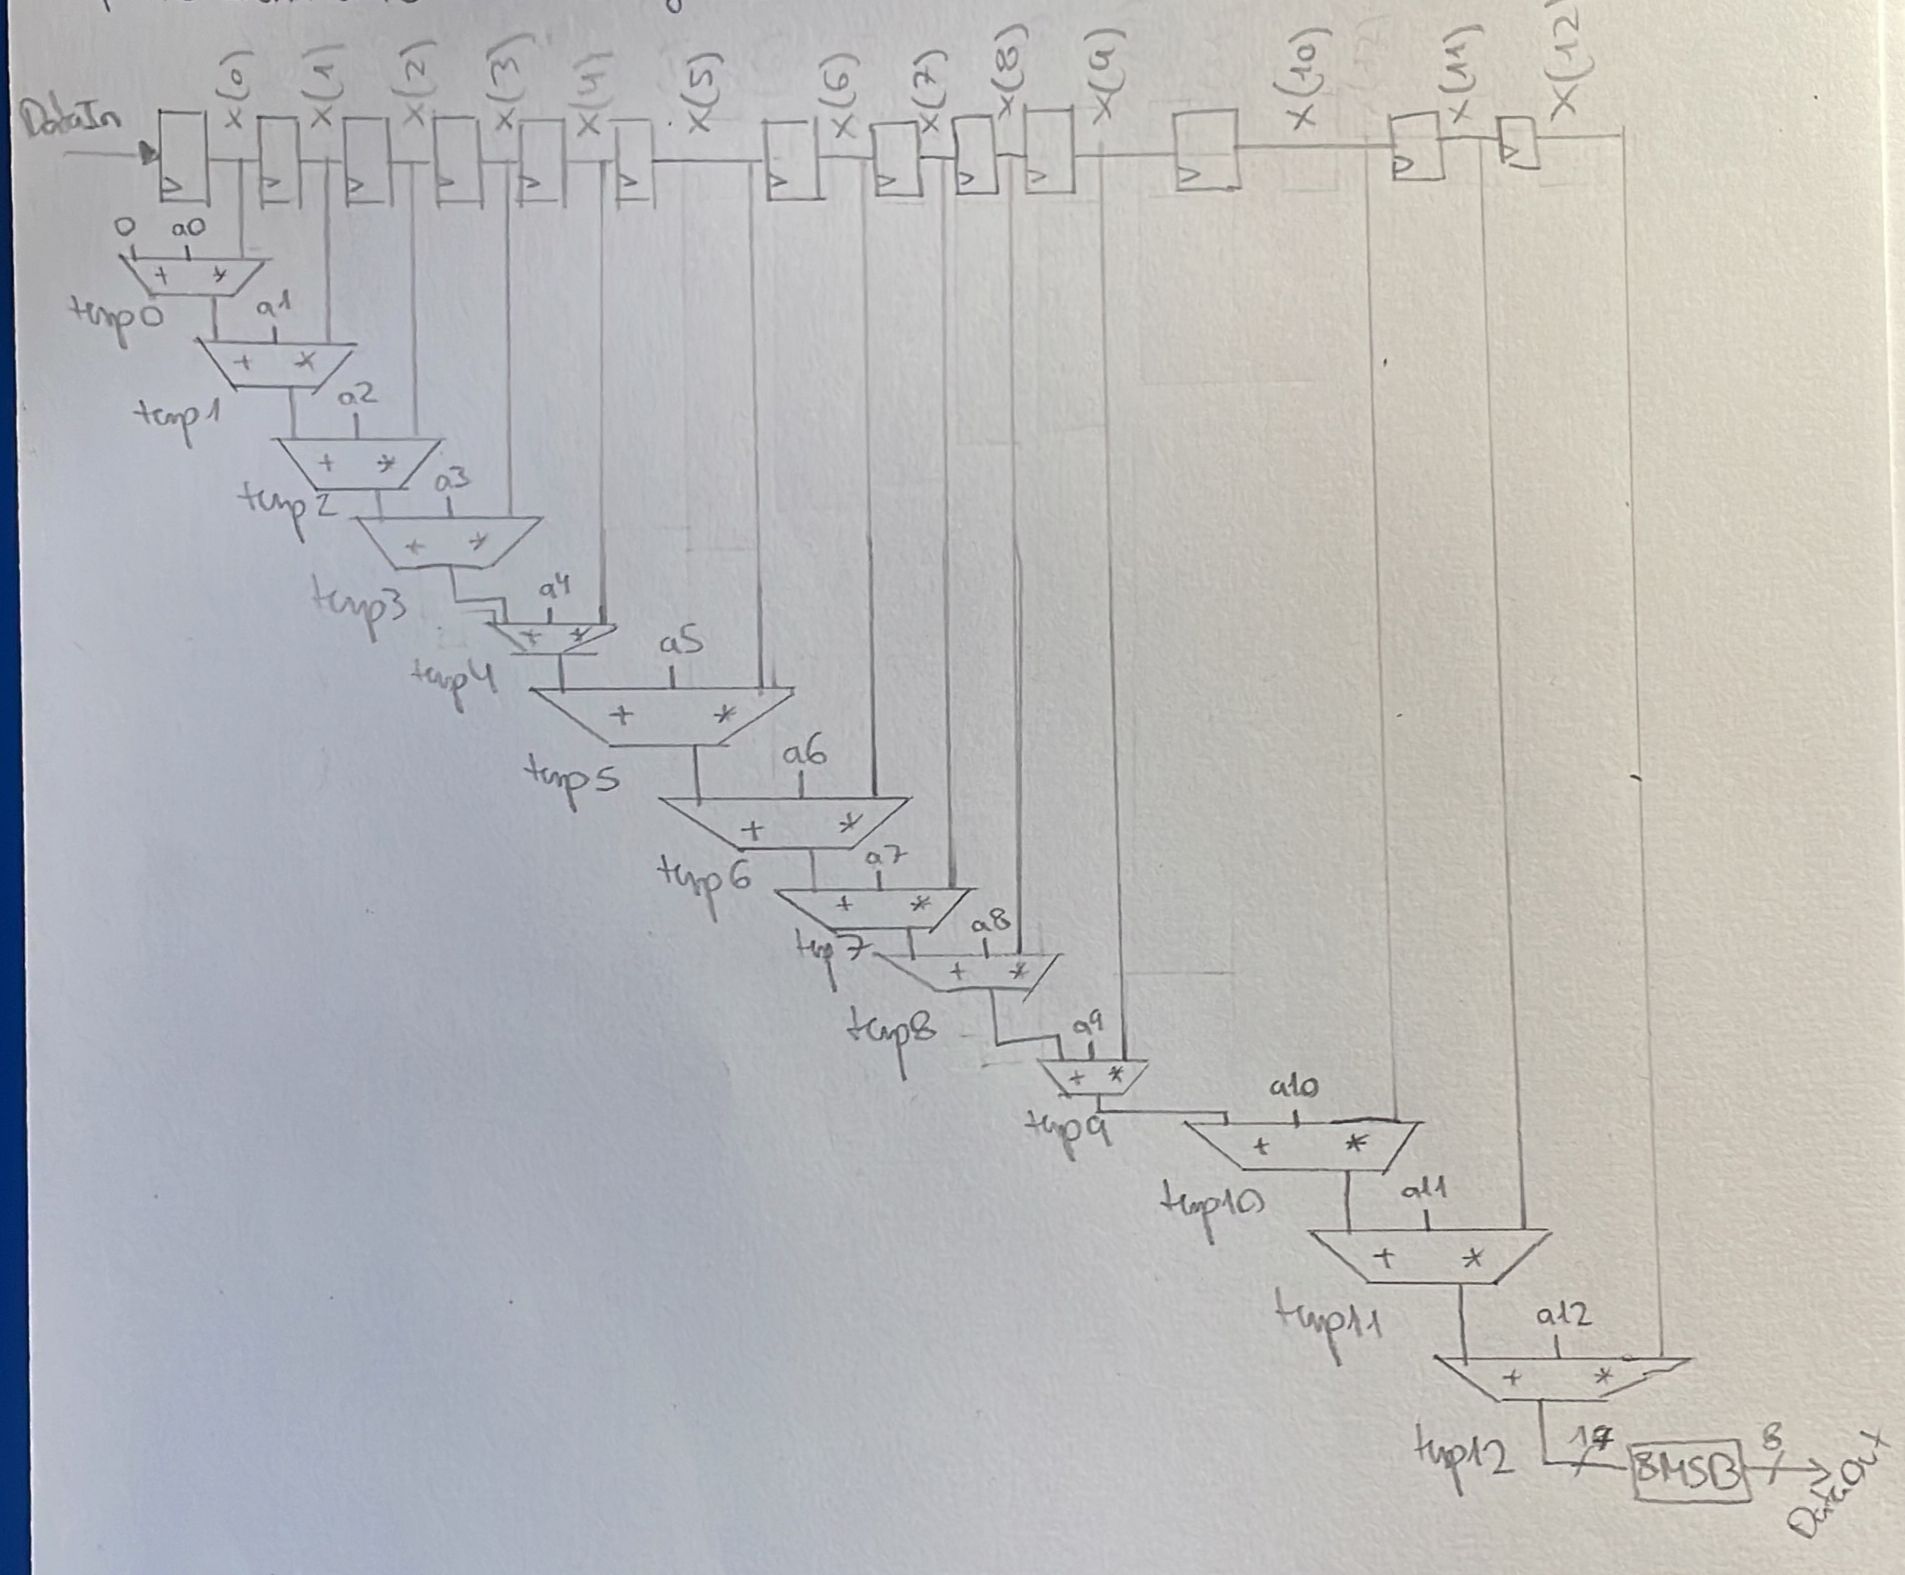 X(0) X(1) X(2) X(3) X(4) X(5) X(6) X(7) X(8) X(9) X(10) X(11) X(12)
DataIn
0 a0
+ *
tmp0 a1
+ *
tmp1 a2
+ *
tmp2 a3
+ *
tmp3 a4
+ *
tmp4 a5
+ *
tmp5 a6
+ *
tmp6 a7
+ *
tmp7 a8
+ *
tmp8 a9
+ *
tmp9 a10
+ *
tmp10 a11
+ *
tmp11 a12
+ *
tmp12 8MSB 8 DataOut